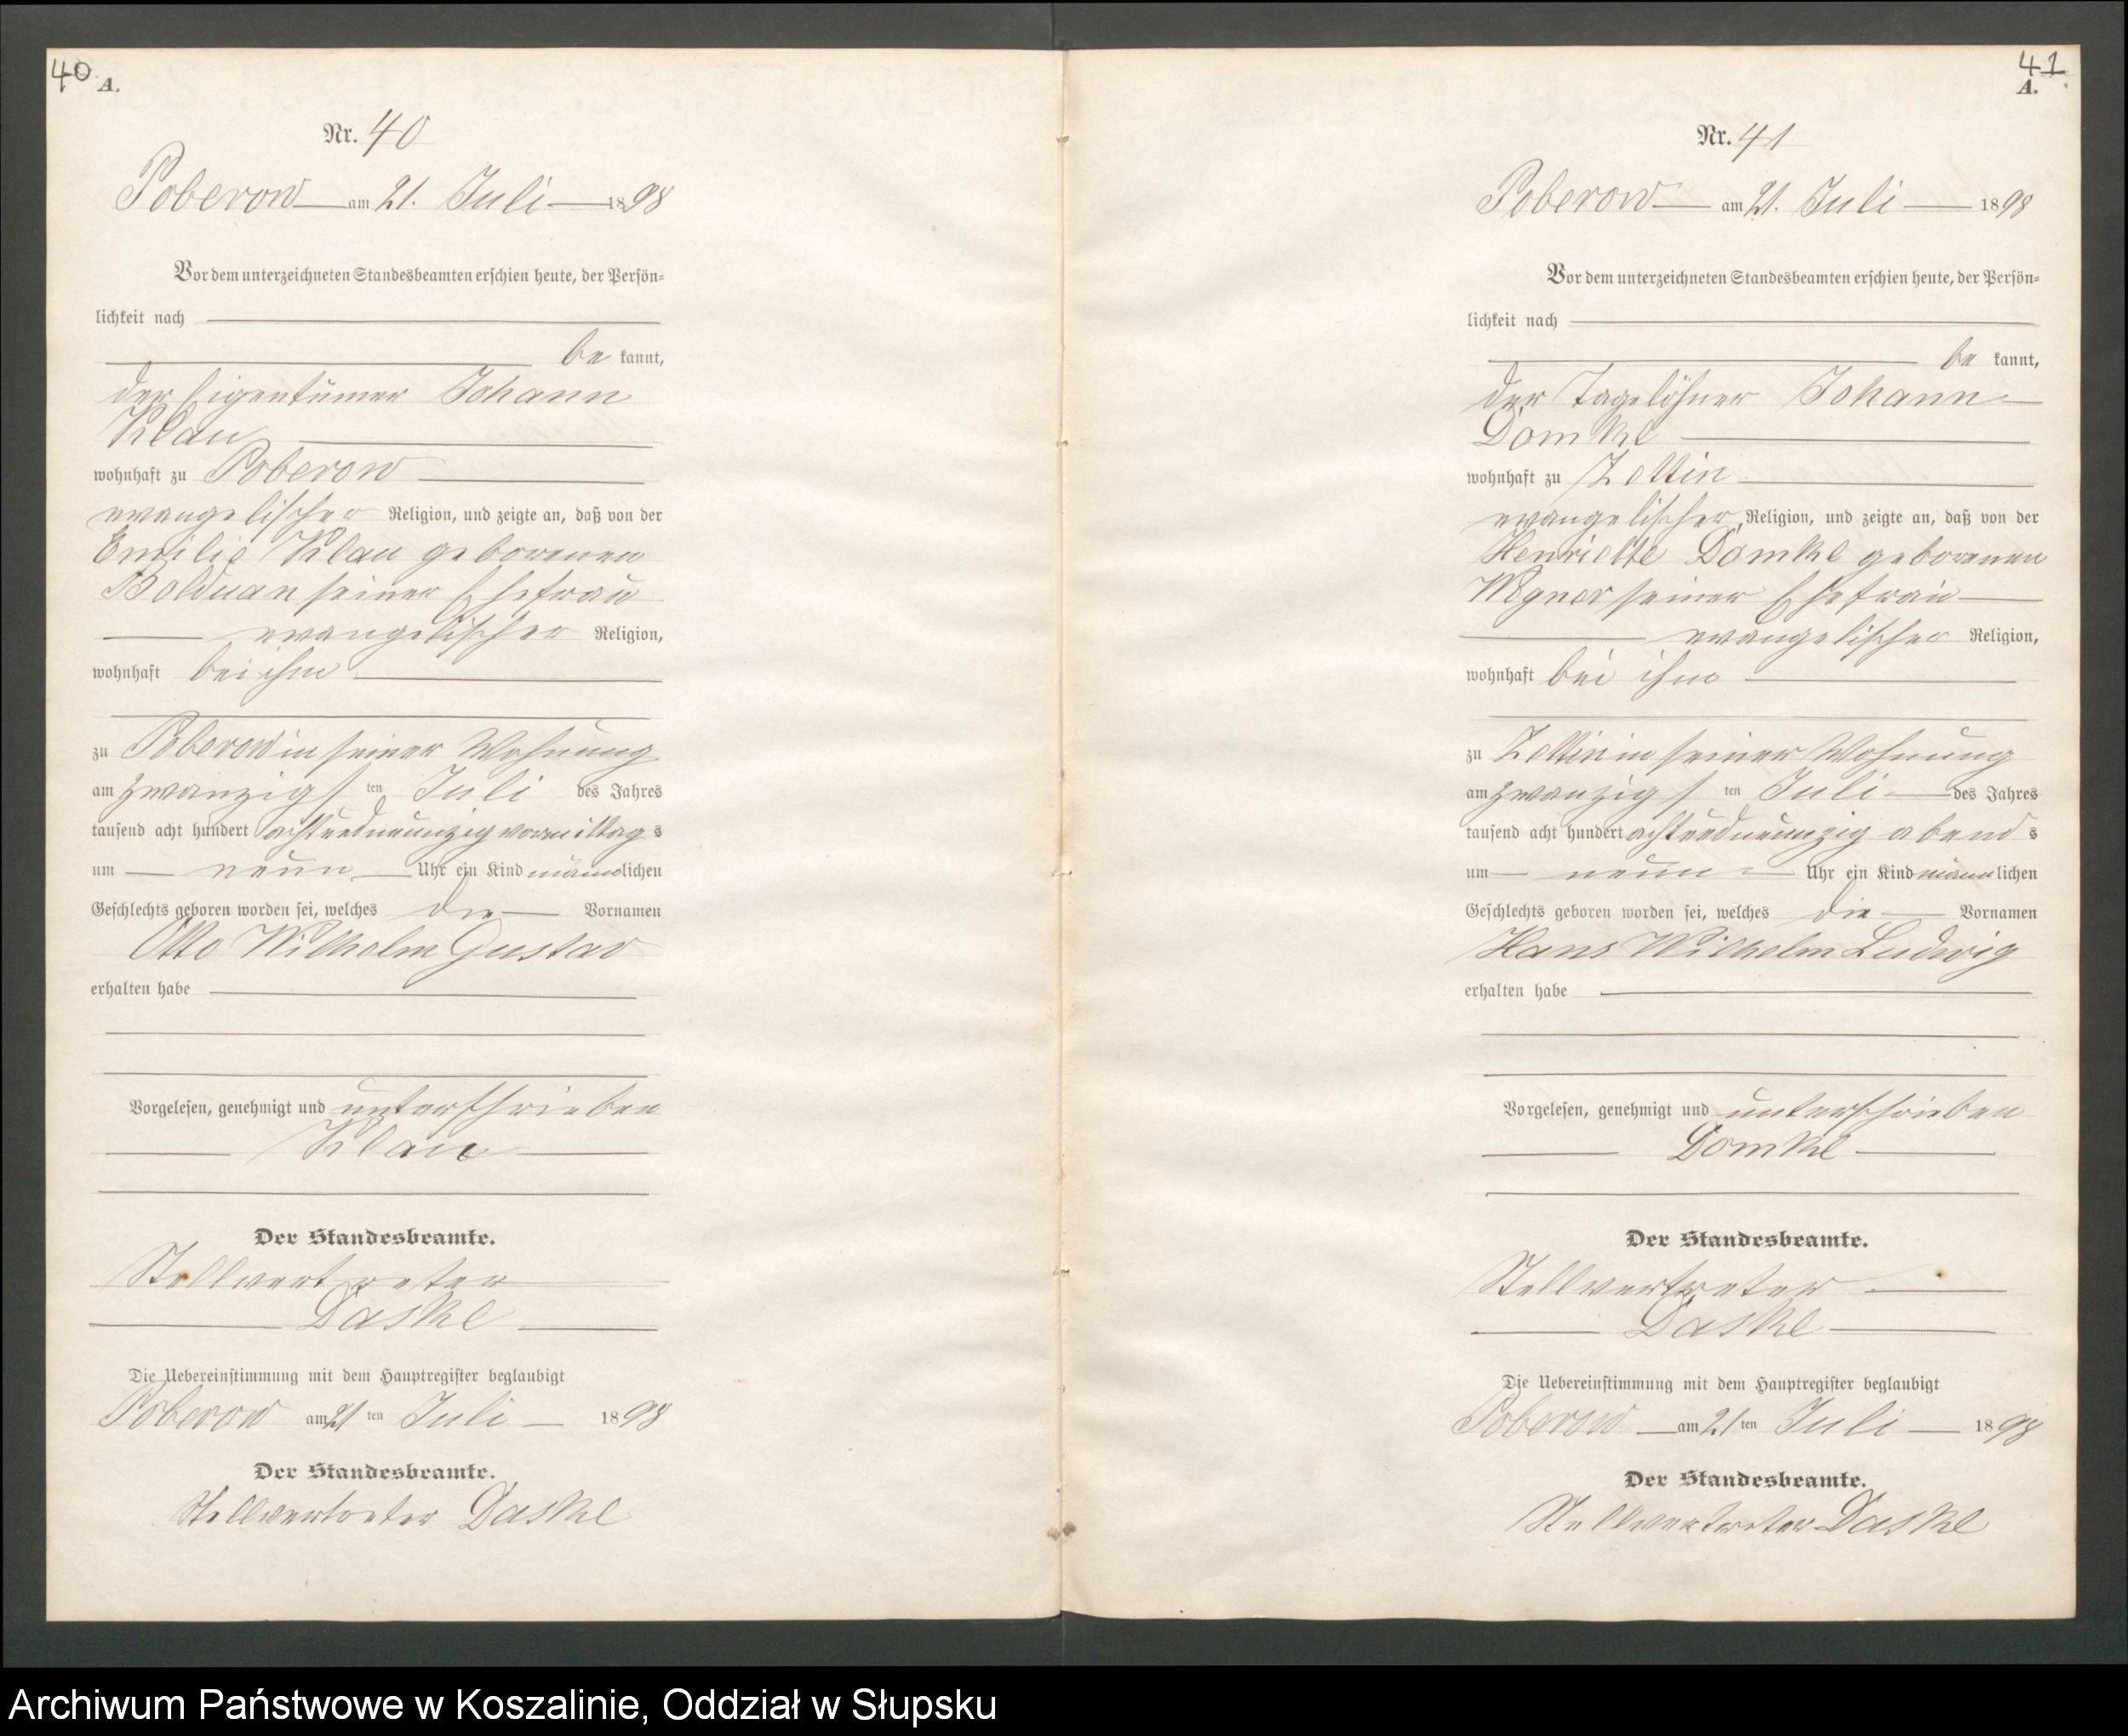 40
A.
Nr. 40
Poberow am 21. Juli 1898
Vor dem unterzeichneten Standesbeamten erschien heute, der Persön-
lichkeit nach
be kannt,
der Eigentümer Johann
Klau
wohnhaft zu Poberow
evangelischer Religion, und zeigte an, daß von der
Emilie Klau geborenen
Bolduan seiner Ehefrau
evangelischer Religion,
wohnhaft bei ihm
zu Poberow in seiner Wohnung
am zwanzigs ten Juli des Jahres
tausend acht hundert achtundneunzig vormittag s
um neun Uhr ein Kind männlichen
Geschlechts geboren worden sei, welches die Vornamen
Otto Wilhelm Gustav
erhalten habe
Vorgelesen, genehmigt und unterschrieben
Klau
Der Standesbeamte.
Stellvertreter
Daske
Die Uebereinstimmung mit dem Hauptregister beglaubigt
Poberow am 21 ten Juli 1898
Der Standesbeamte.
Stellvertreter Daske
41
A.
Nr. 41
Poberow am 21. Juli 1898
Vor dem unterzeichneten Standesbeamten erschien heute, der Persön-
lichkeit nach
be kannt,
der Tagelöhner Johann
Domke
wohnhaft zu Zettin
evangelischer Religion, und zeigte an, daß von der
Henriette Domke geborenen
seiner Ehefrau
evangelischer Religion,
wohnhaft bei ihm
zu Zettin in seiner Wohnung
am zwanzigs ten Juli des Jahres
tausend acht hundert achtundneunzig abend s
um neun Uhr ein Kind männlichen
Geschlechts geboren worden sei, welches die Vornamen
Hans Wilhelm Ludwig
erhalten habe
Vorgelesen, genehmigt und unterschrieben
Domke
Der Standesbeamte.
Stellvertreter
Daske
Die Uebereinstimmung mit dem Hauptregister beglaubigt
Poberow am 21 ten Juli 1898
Der Standesbeamte.
Stellvertreter Daske
Archiwum Państwowe w Koszalinie, Oddział w Słupsku